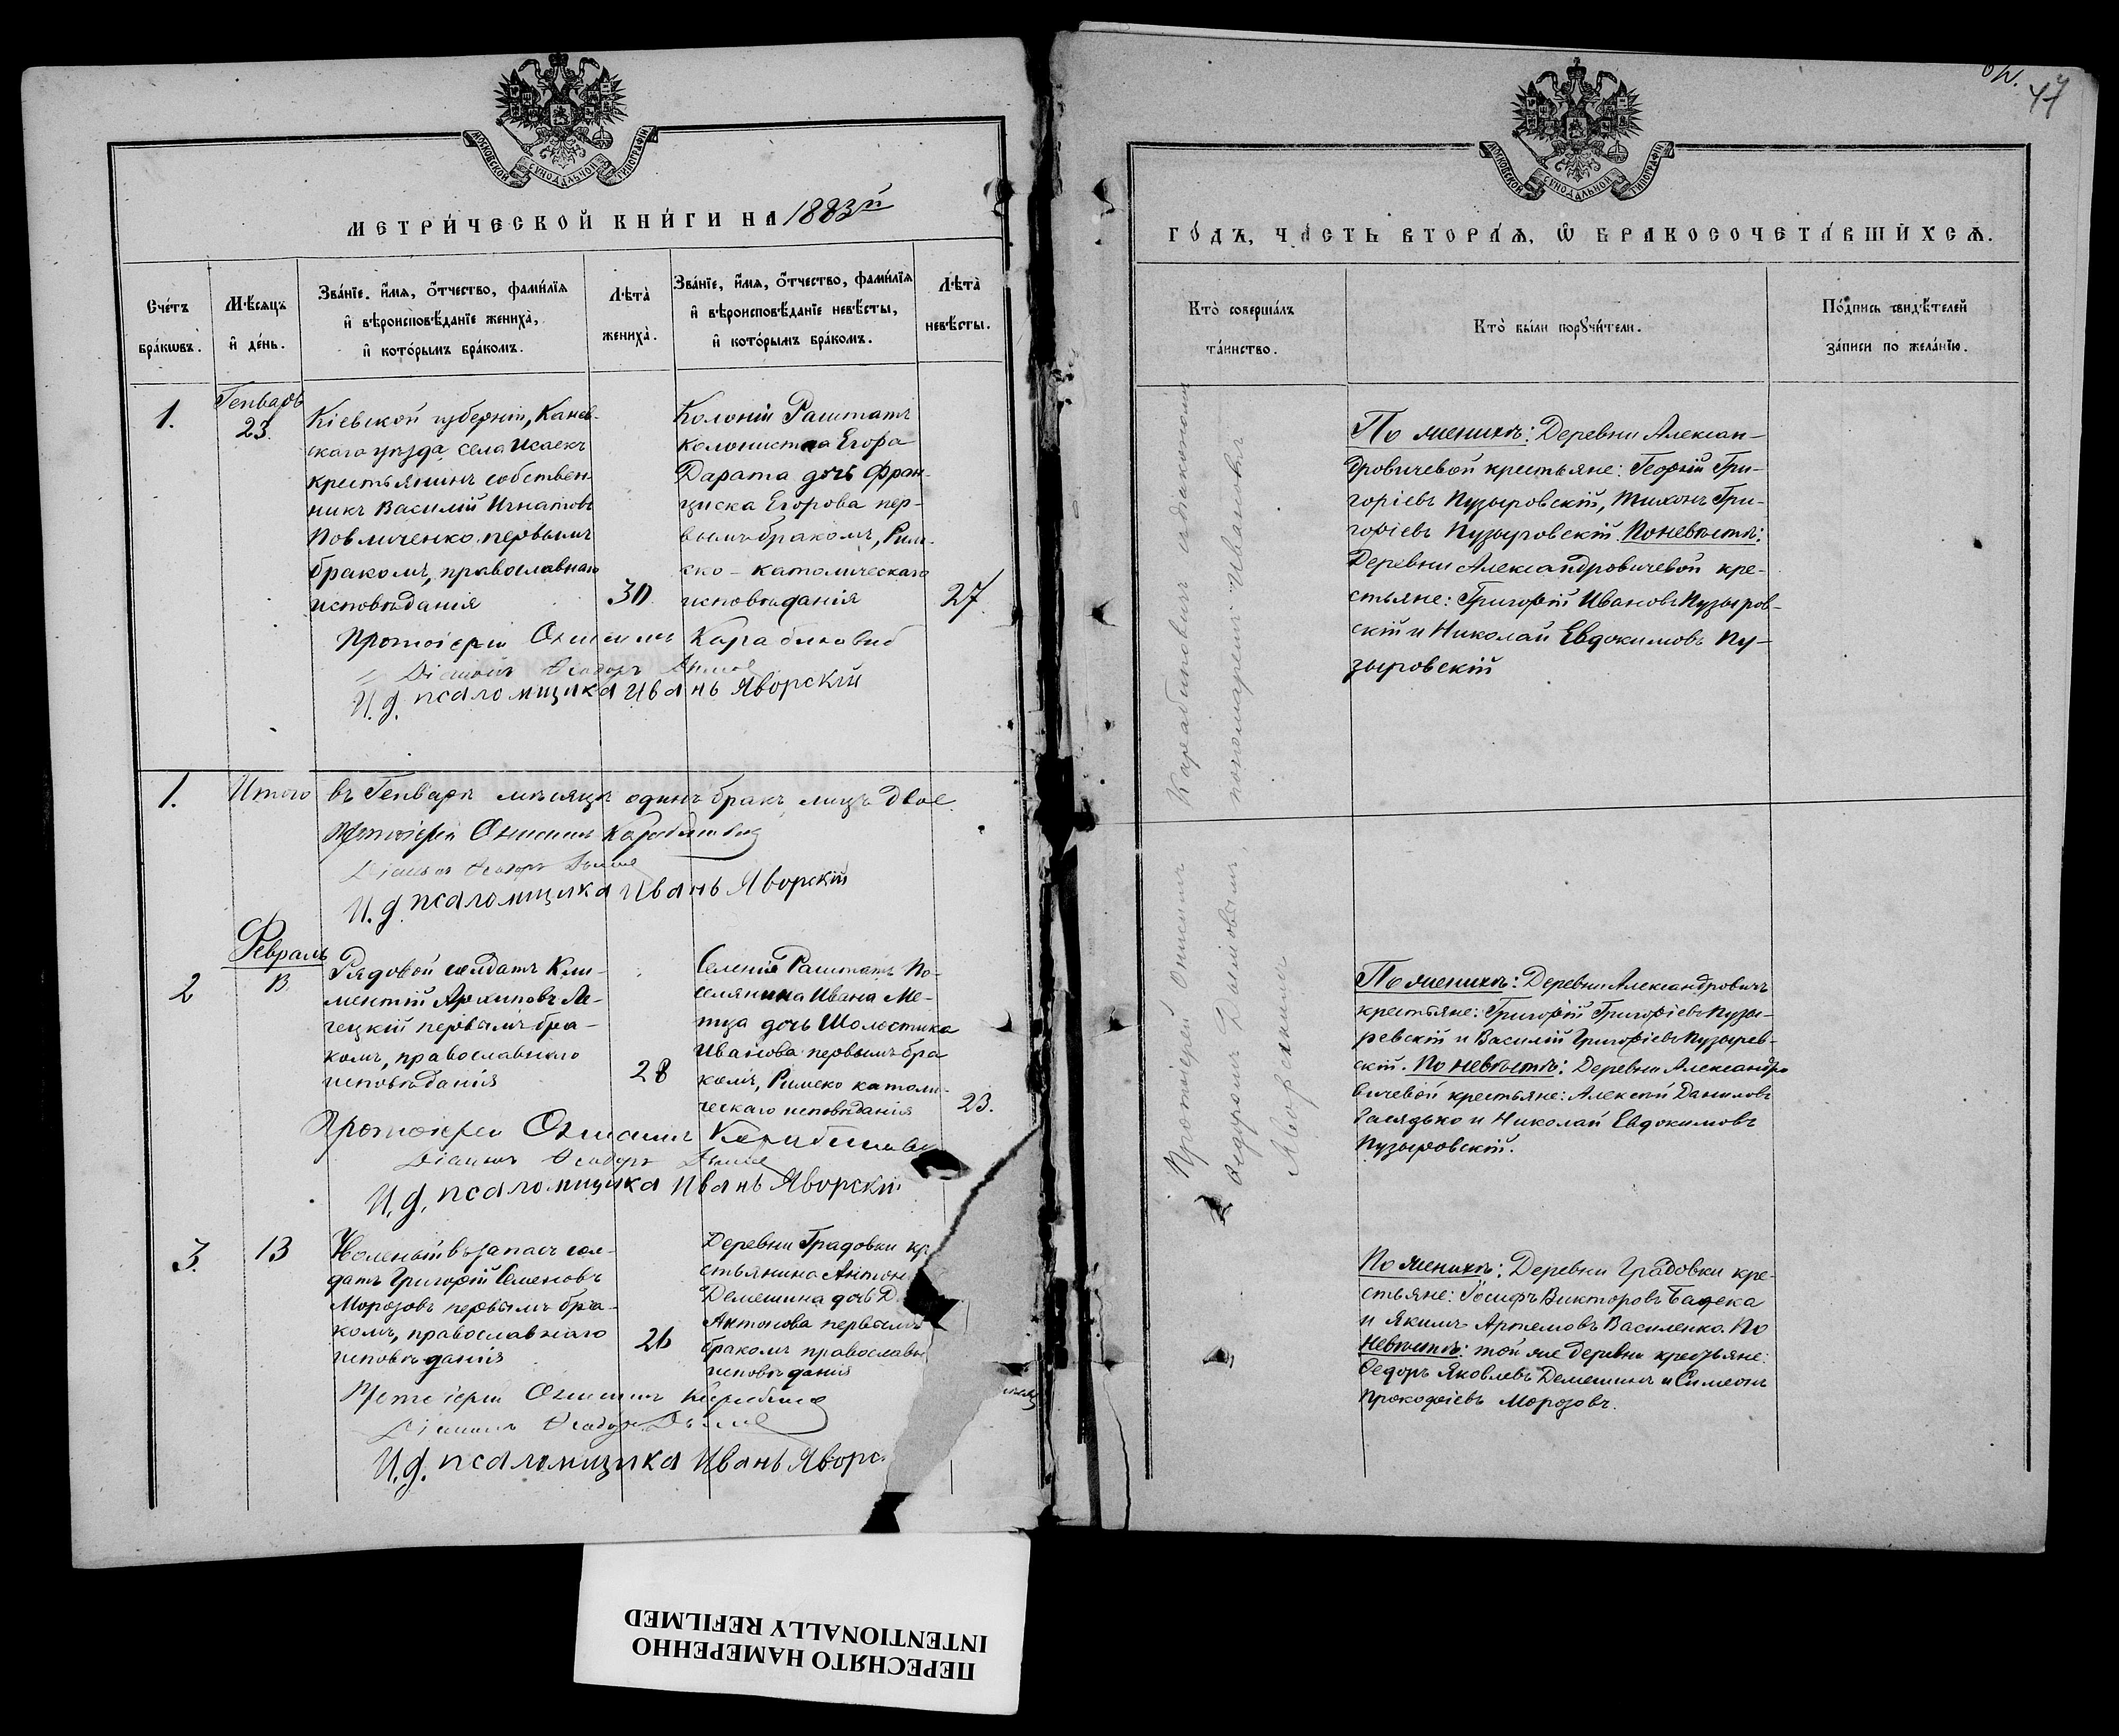 МОСКОВСКОЙ СѴНОДАЛЬНОЙ ТИПОГРАФІИ
МЕТРИ́ЧЕСКОЙ КНИ́ГИ НА 1883й
Сче́тъ бра́кѡвъ.
Мѣ́сяцъ и҆ де́нь.
Зва́нїе, и҆́мѧ, ѻ҆́тчество, фами́лїѧ
и҆ вѣроисповѣ́данїе жениха̀,
и҆ кото́рымъ бра́комъ.
Лѣта̀ жениха̀.
Зва́нїе, и҆́мѧ, ѻ҆́тчество, фами́лїѧ
и҆ вѣроисповѣ́данїе невѣ́сты,
и҆ кото́рымъ бра́комъ.
Лѣта̀ невѣ́сты.
1.
Генварь
23.
Кіевской губерніи, Канев-
скаго уѣзда села Исаекъ
крестьянинъ собствен-
никъ Василій Игнатовъ
первымъ
бракомъ, православнаго
исповѣданія
30
Колоніи Раштатъ
колониста Егора
Дарата дочь Фран-
циска Егорова пер-
вымъ бракомъ, Рим-
ско-католическаго
исповѣданія
27.
Протоіерей Онисимъ Карабиновичъ
Діаконъ Ѳеодоръ
И.д. псаломщика Иванъ Яворскій
1. Итого въ Генварѣ мѣсяцѣ одинъ бракъ, лицъ двое.
Протоіерей Онисимъ Карабиновичъ
Діаконъ Ѳеодоръ
И.д. псаломщика Иванъ Яворскій
2
Февраль
13
Рядовой солдатъ Кли-
ментій Архиповъ
первымъ бра-
комъ, православнаго
исповѣданія
28
Раштатъ По-
селянина Ивана Ме-
тца дочь Шоластика
Иванова первымъ бра
комъ, Римско католи-
ческаго исповѣданія
23.
Протоіерей Онисимъ
Діаконъ Ѳеодоръ
И.д. псаломщика Иванъ Яворскій
3.
13
въ запасъ сол-
датъ Григорій Семеновъ
Морозовъ первымъ бра-
комъ, православнаго
исповѣданія
26
Деревни Градовки кр
стьянина Антон
Демешина дочь Д
Антонова первымъ
бракомъ православн
исповѣданія
Протоіерей Онисимъ
Діаконъ Ѳеодоръ
И.д. псаломщика Иванъ Яворс
47
МОСКОВСКОЙ СѴНОДАЛЬНОЙ ТИПОГРАФІИ
ГО́ДЪ, ЧА́СТЬ ВТОРА́Ѧ, Ѡ҆ БРАКОСОЧЕТА́ВШИХСѦ.
Кто̀ соверша́лъ
та́инство.
Кто̀ бы́ли порꙋчи́тели.
По́дпись свидѣ́телей
за́писи по жела́нїю.
Протоіерей Онисимъ Карабиновичъ съ діакономъ
Ѳедоромъ Дымовымъ, пономаремъ Ивановъ
Яворскимъ
По женихѣ: Деревни Алексан-
дровичевой крестьяне: Георгій Гри-
горіевъ Пузыровскій, Тихонъ Гри-
горіевъ Пузыровскій. По невѣстѣ:
Деревни Александровичевой кре-
стьяне: Григорій Ивановъ Пузыров-
скій и Николай Евдокимовъ Пу-
зыровскій
По женихѣ: Деревни Александрович
крестьяне: Григорій Григоріевъ Пузы-
ревскій и Василій Григоріевъ Пузырев-
скій. По невѣстѣ: Деревни Александро
вичевой крестьяне: Алексѣй Даниловъ
и Николай Евдокимовъ
Пузыровскій.
По женихѣ: Деревни Градовки кре-
стьяне: Іосифъ Викторовъ
и Якимъ Артемовъ Василенко. По
невѣстѣ: той же деревни крестьяне:
Ѳедоръ Яковлевъ Демешинъ и Симеонъ
Прокофіевъ Морозовъ.
ПЕРЕСНЯТО НАМЕРЕННО
INTENTIONALLY REFILMED